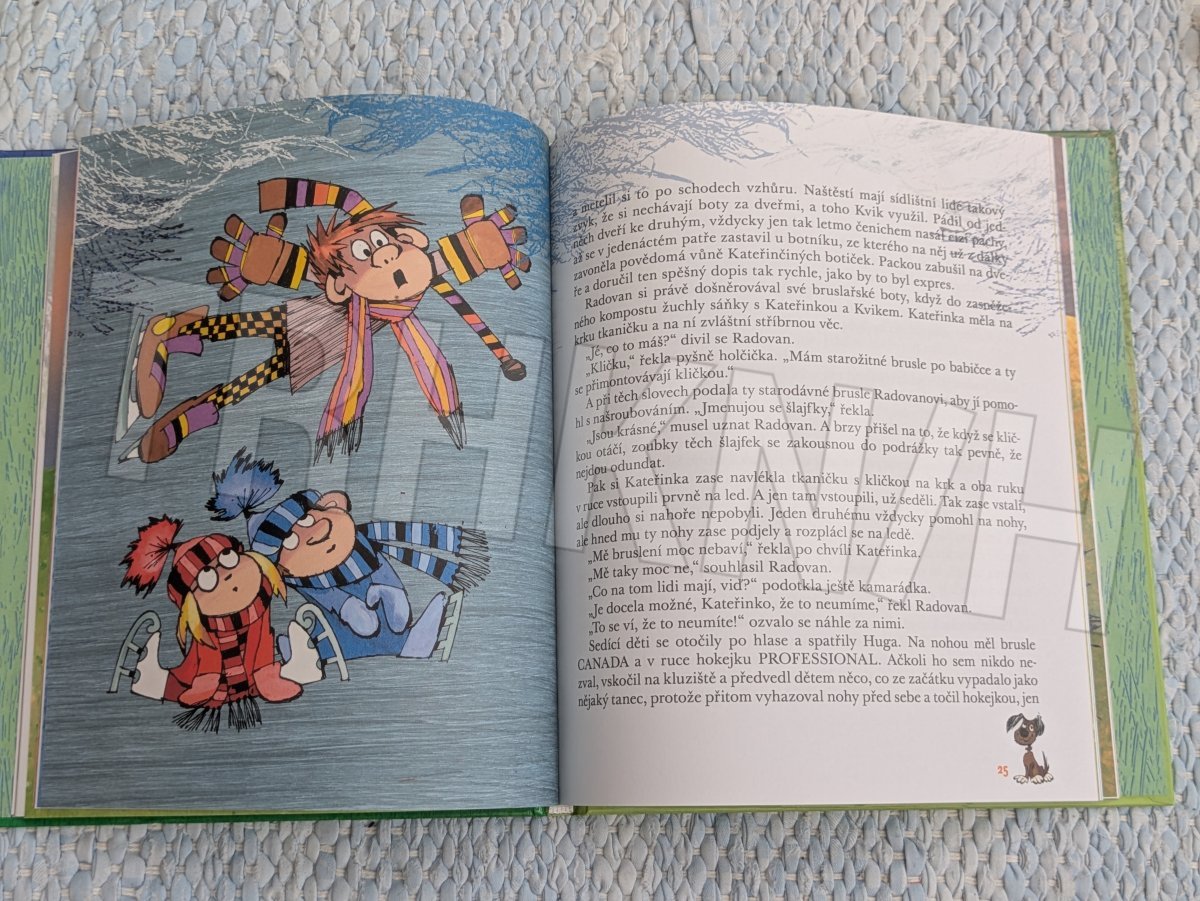 a metelil si to po schodech vzhůru. Naštěstí mají sídlištní lidé takový
zvyk, že si nechávají boty za dveřmi, a toho Kvik využil. Pádil od jed-
něch dveří ke druhým, vždycky jen tak letmo čenichem nasál cizí pachy,
až se v jedenáctém patře zastavil u botníku, ze kterého na něj už z dálky
zavoněla povědomá vůně Kateřinčiných botiček. Packou zabušil na dve-
ře a doručil ten spěšný dopis tak rychle, jako by to byl expres.
Radovan si právě došněrovával své bruslařské boty, když do zasněže-
ného kompostu žuchly sáňky s Kateřinkou a Kvikem. Kateřinka měla na
krku tkaničku a na ní zvláštní stříbrnou věc.
„Jé, co to máš?“ divil se Radovan.
„Kličku,“ řekla pyšně holčička. „Mám starožitné brusle po babičce a ty
se přimontovávají kličkou.“
A při těch slovech podala ty starodávné brusle Radovanovi, aby jí pomo-
hl s našroubováním. „Jmenujou se šlajfky,“ řekla.
„Jsou krásné,“ musel uznat Radovan. A brzy přišel na to, že když se klič-
kou otáčí, zoubky těch šlajfek se zakousnou do podrážky tak pevně, že
nejdou odundat.
Pak si Kateřinka zase navlékla tkaničku s kličkou na krk a oba ruku
v ruce vstoupili prvně na led. A jen tam vstoupili, už seděli. Tak zase vstali,
ale dlouho si nahoře nepobyli. Jeden druhému vždycky pomohl na nohy,
ale hned mu ty nohy zase podjely a rozplácl se na ledě.
„Mě bruslení moc nebaví,“ řekla po chvíli Kateřinka.
„Mě taky moc ne,“ souhlasil Radovan.
„Co na tom lidi mají, viď?“ podotkla ještě kamarádka.
„Je docela možné, Kateřinko, že to neumíme,“ řekl Radovan.
„To se ví, že to neumíte!“ ozvalo se náhle za nimi.
Sedící děti se otočily po hlase a spatřily Huga. Na nohou měl brusle
CANADA a v ruce hokejku PROFESSIONAL. Ačkoli ho sem nikdo ne-
zval, vskočil na kluziště a předvedl dětem něco, co ze začátku vypadalo jako
nějaký tanec, protože přitom vyhazoval nohy před sebe a točil hokejkou, jen
25